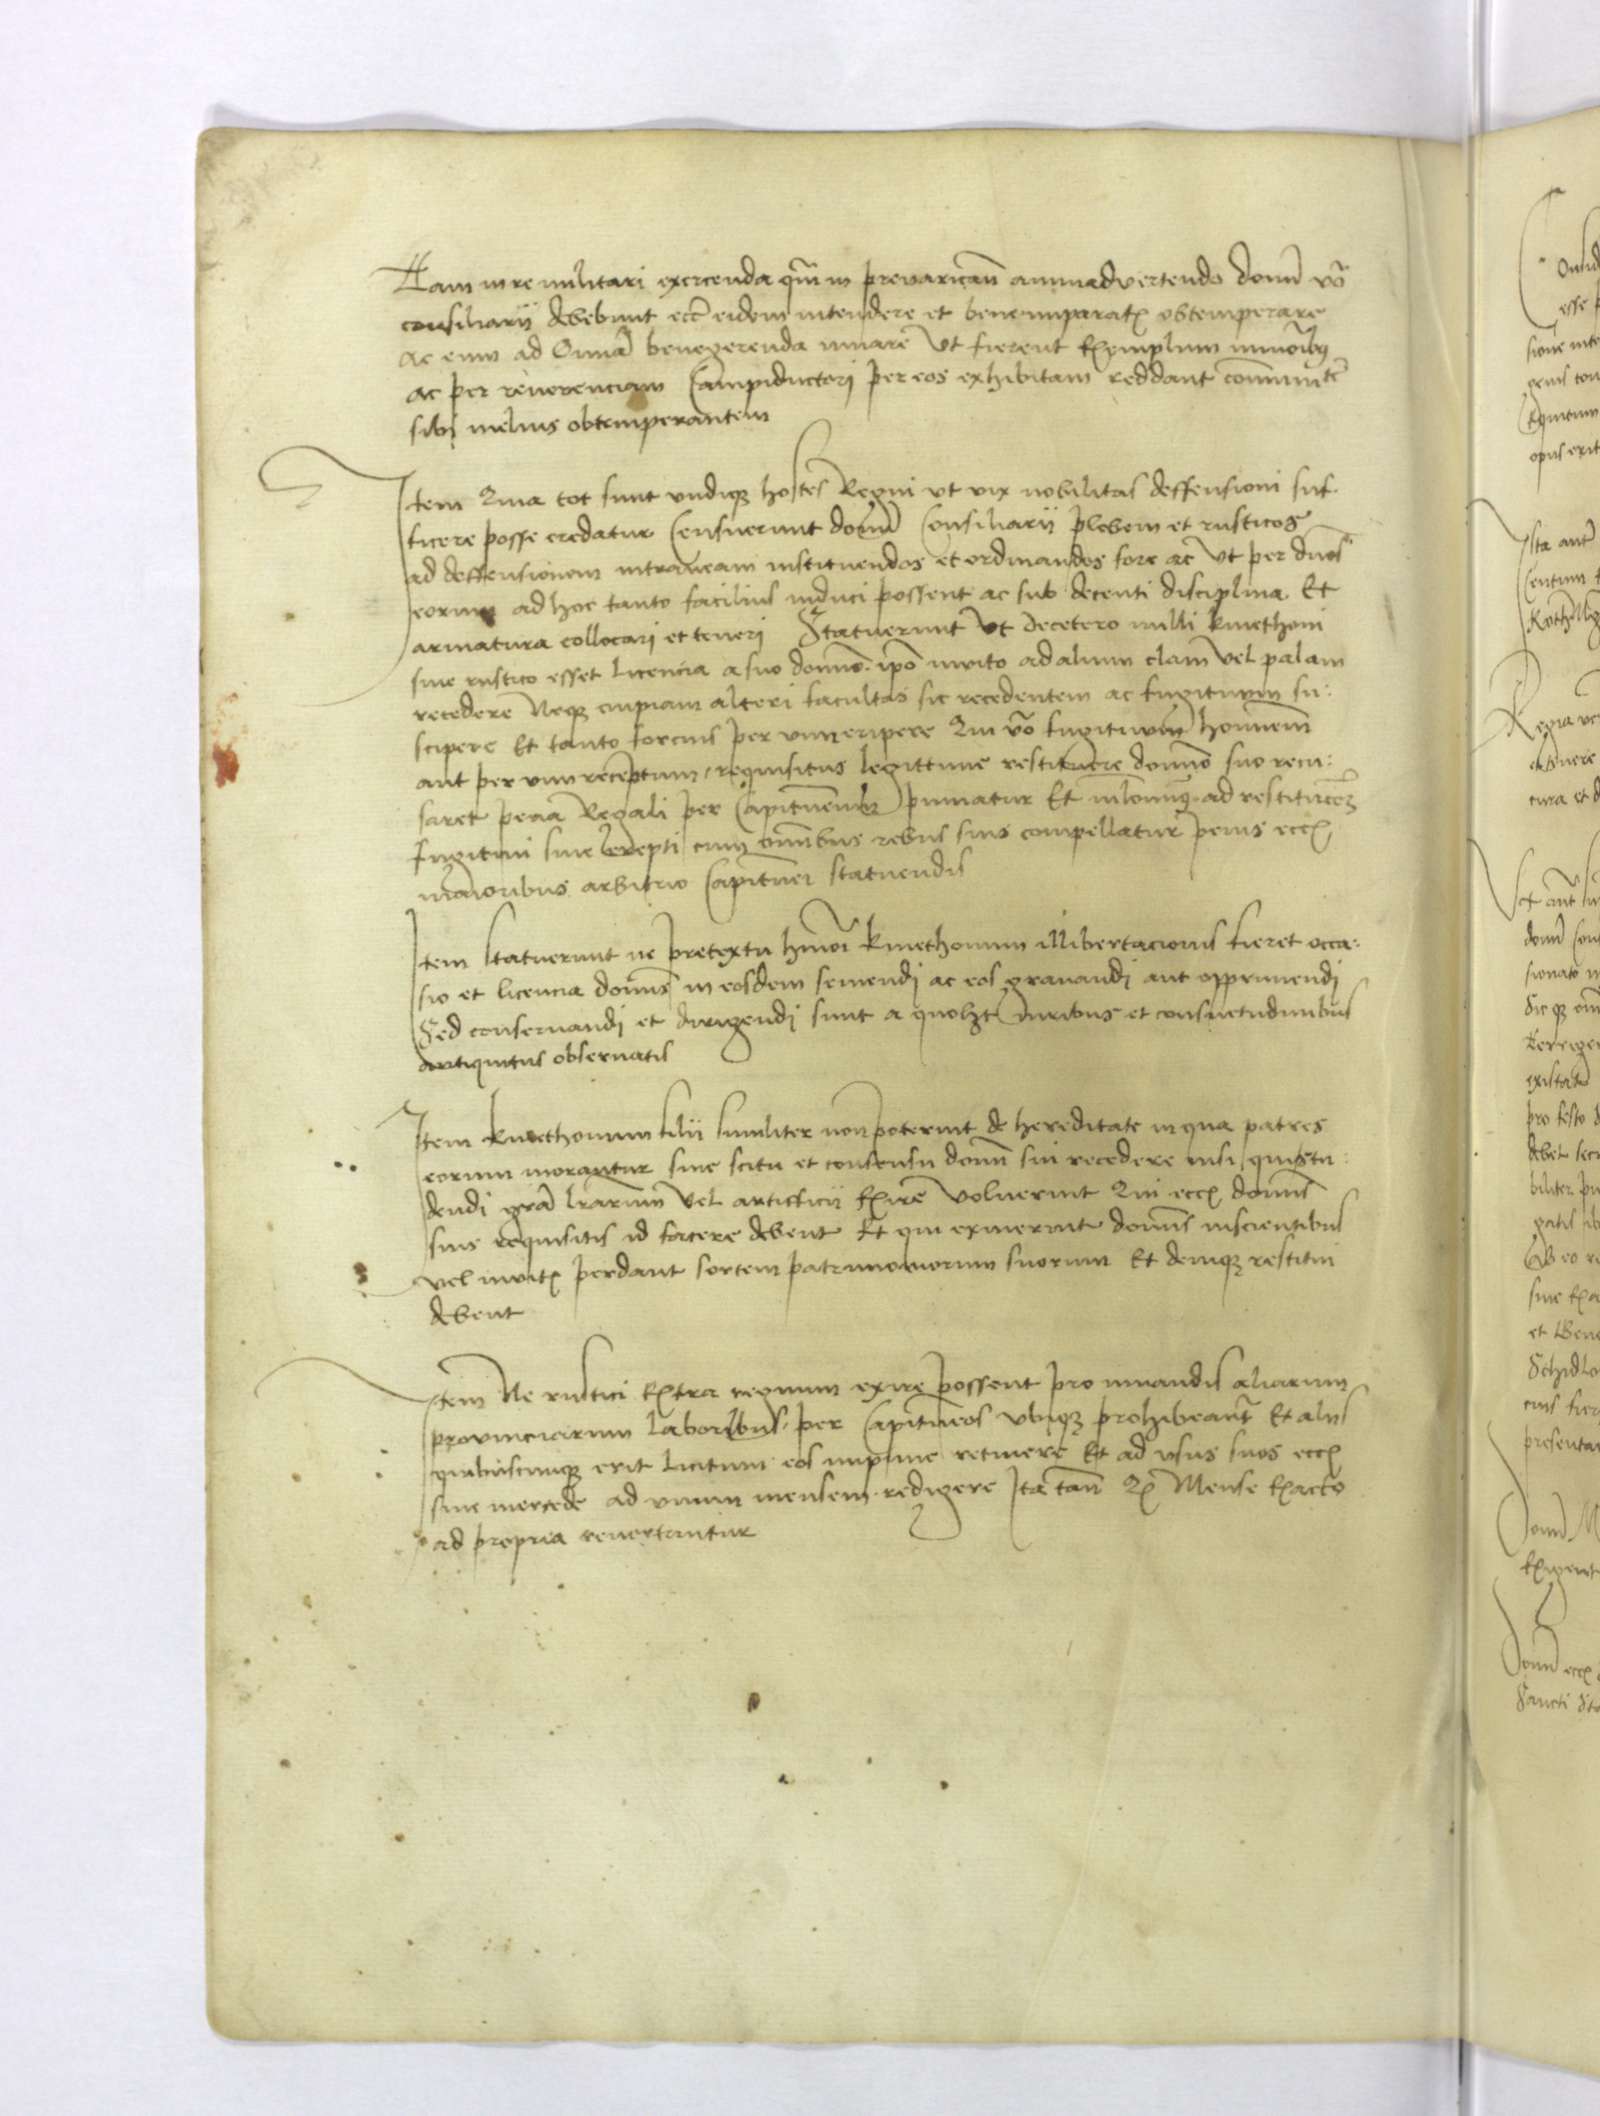 Tam in re militari exercenda qm̄ in prevarican̄ animadvertendo domī vō
consiliarii debebunt ecc̄ eidem intendere et bene imparatꝭ obtemperare
ac eum ad Omnā benegerenda iuuare Vt fierent Exemplum minoribꝫ
ac per reuerenciam Campiductori per eos exhibitam reddant communiter
sibi melius obtemperantem
Item Quia tot sunt vndiqꝫ hostes Regni vt vix nobilitas deffensioni suf-
ficere posse credatur Censuerunt domī Consiliarii plebem et rusticos
ad deffensionem intraneam instituendos et ordinandos fore ac Vt per dnōs
eorum ad hoc tanto facilius induci possent ac sub decenti disciplina Et
armatura collocari et teneri Statuerunt Vt decetero nulli kmethoni
siue rustico esset Licencia a suo domīo ipō inuito ad alium clam Vel palam
recedere Neqꝫ cuipiam alteri facultas sic recedentem ac fugitiuum su:
scipere Et tanto forcius per vim eripere Qui vō fugitiuum hominem
aut per vim receptum requisitus legittime restituere domīo suo recu:
saret pena Regali per Capitūem puniatur Et ad restitucōeꝫ
fugitiui siue erepti cum omībus rebus suis compellatur penis ecc̄
maioribus arbitrio Capitūei statuendis
Item statuerunt ne pretextu hmōi kmethonum illibertacionis fieret occa:
sio et licencia domīs in eosdem seuiendi ac eos grauandi aut opprimendi
Sed conseruandi et dirigendi sunt a quolꝫt iuribus et consuetudinibus
antiquitus obseruatis
Item kmethonum filii similiter non poterint de hereditate in qua patres
eorum morantur sine scitu et consensu domī sui recedere nisi qui stu:
dendi grā lrārum Vel artifficii Exire Voluerint Qui ecc̄ domīs
suis requisitis id facere debent Et qui exiuerint domīs inscientibus
vel inuitꝭ perdant sortem patrimoniorum suorum Et deniqꝫ restitui
debent
Item Ne rustici Extra regnum exire possent pro iuuandis aliarum
prouinciarum laboribus per Capitūeos vbiqꝫ prohibeant̄ Et aliis
quibuscunqꝫ erit licitum eos impune retinere Et ad vsus suos ecc̄
sine mercede ad vnum mensem redigere Ita tan̄ Qꝭ Mense Exacto
ad propria reuertantur